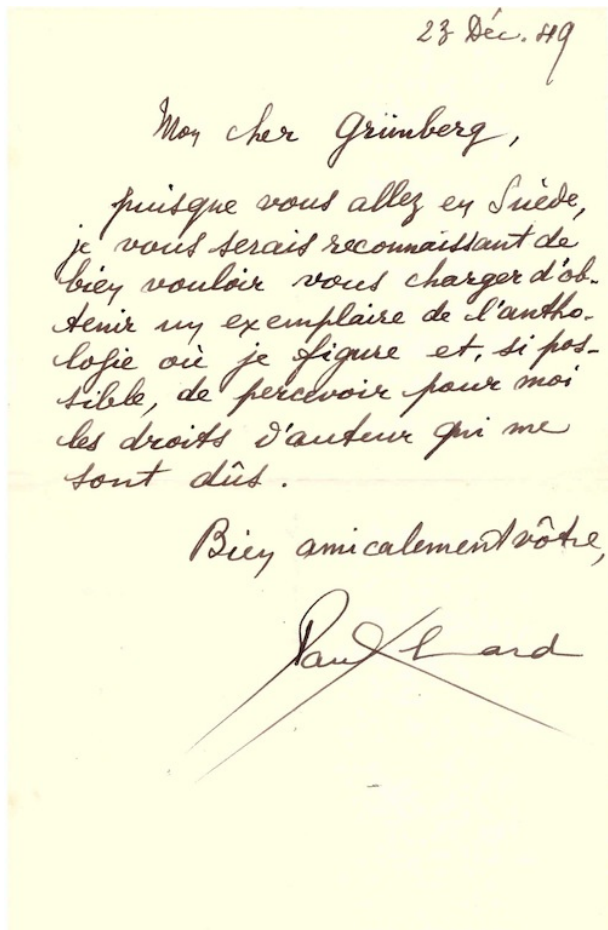 23 Déc. 49
Mon cher Grünberg,
puisque vous allez en Suède,
je vous serais reconnaissant de
bien vouloir vous charger d'ob-
tenir un exemplaire de l'antho-
logie où je figure et, si pos-
sible, de percevoir pour moi
les droits d'auteur qui me
sont dûs.
Bien amicalement vôtre,
Paul Eluard